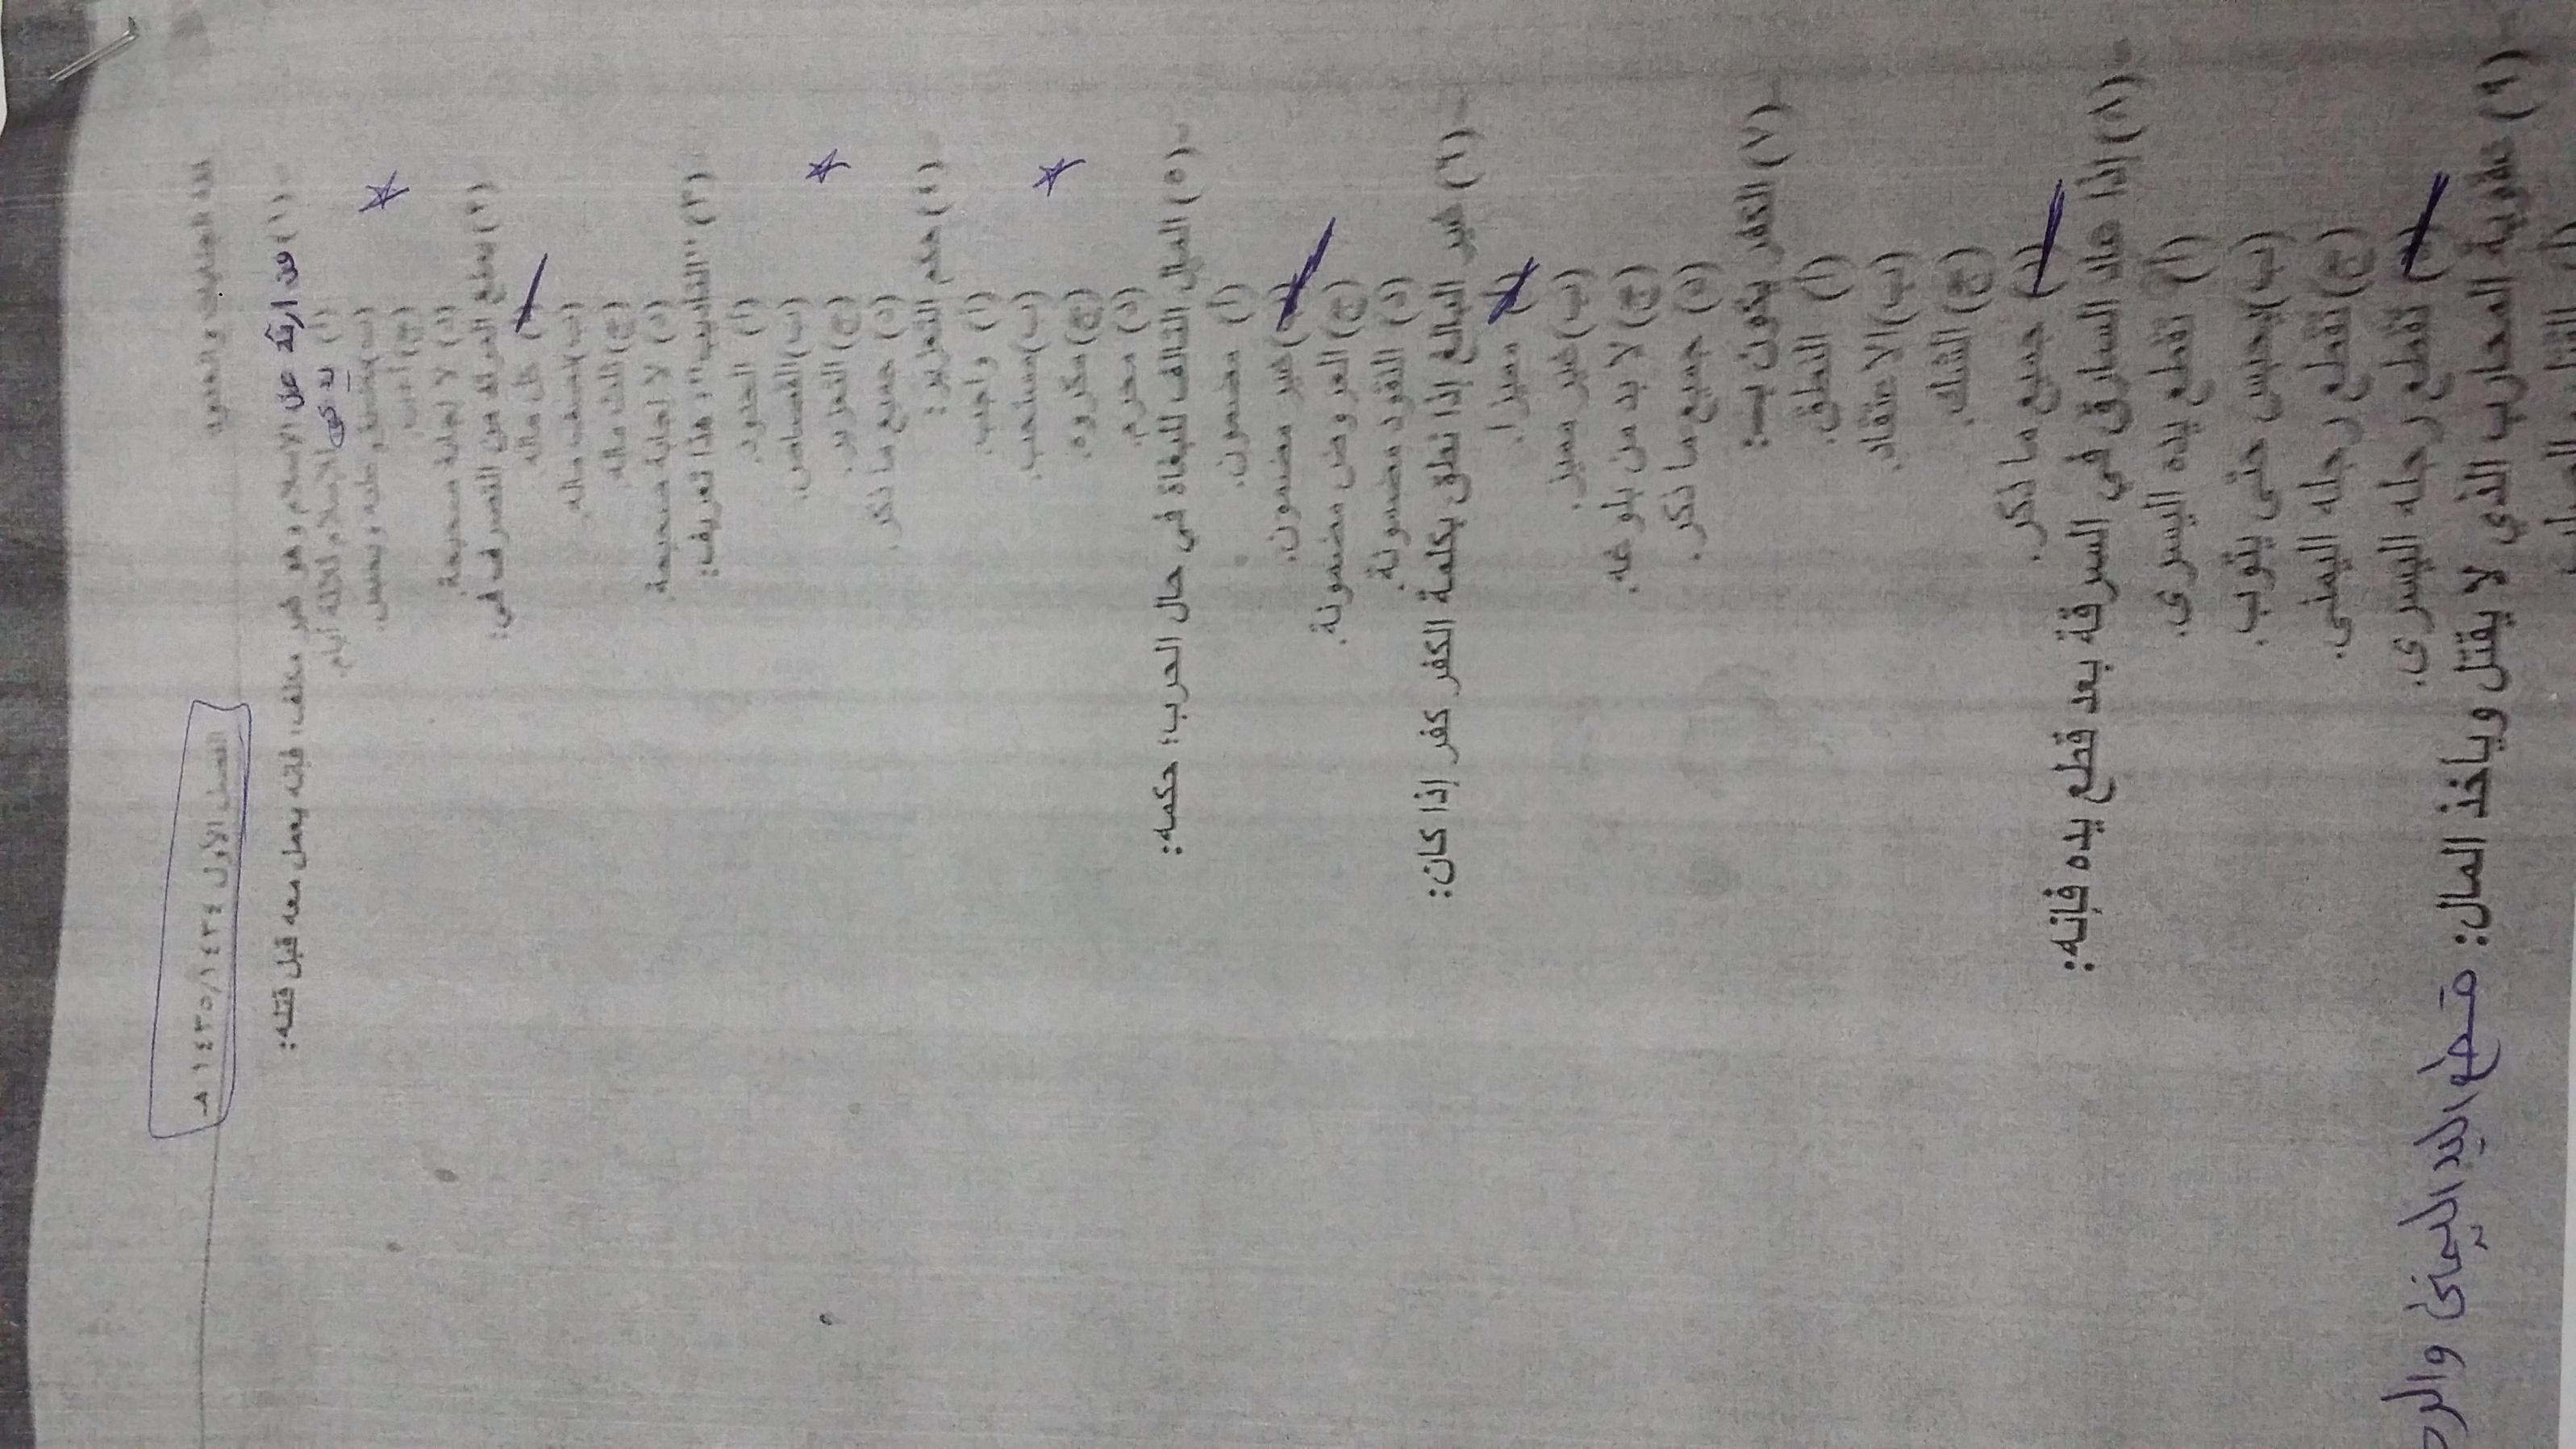 فقه الجنايات والحدود
الفصل الأول ١٤٣٤/١٤٣٥ هـ
(١) من ارتد عن الإسلام وهو غير مكلف، فإنه يعمل معه قبل قتله:
(أ) يدعى للإسلام ثلاثة أيام.
(ب) يضيق عليه ويحبس.
(ج) أ+ب.
(د) لا إجابة صحيحة
(٢) يمنع المرتد من التصرف في:
(أ) كل ماله.
(ب) نصف ماله.
(ج) ثلث ماله.
(د) لا إجابة صحيحة
(٣) "التأديب"، هذا تعريف:
(أ) الحدود.
(ب) القصاص.
(ج) التعازير.
(د) جميع ما ذكر.
(٤) حكم التعزير:
(أ) واجب.
(ب) مستحب.
(ج) مكروه.
(د) محرم.
(٥) المال التالف للبغاة في حال الحرب؛ حكمه:
(أ) مضمون.
(ب) غير مضمون.
(ج) العروض مضمونة.
(د) النقود مضمونة.
(٦) غير البالغ إذا نطق بكلمة الكفر كفر إذا كان:
(أ) مميزا.
(ب) غير مميز.
(ج) لا بد من بلوغه.
(د) جميع ما ذكر.
(٧) الكفر يكون بـ:
(أ) النطق.
(ب) الاعتقاد.
(ج) الشك.
(د) جميع ما ذكر.
(٨) إذا عاد السارق في السرقة بعد قطع يده فإنه:
(أ) تقطع يده اليسرى.
(ب) يحبس حتى يتوب.
(ج) تقطع رجله اليمنى.
(د) تقطع رجله اليسرى.
(٩) عقوبة المحارب الذي لا يقتل ويأخذ المال: قطع اليد اليمنى والرجـ